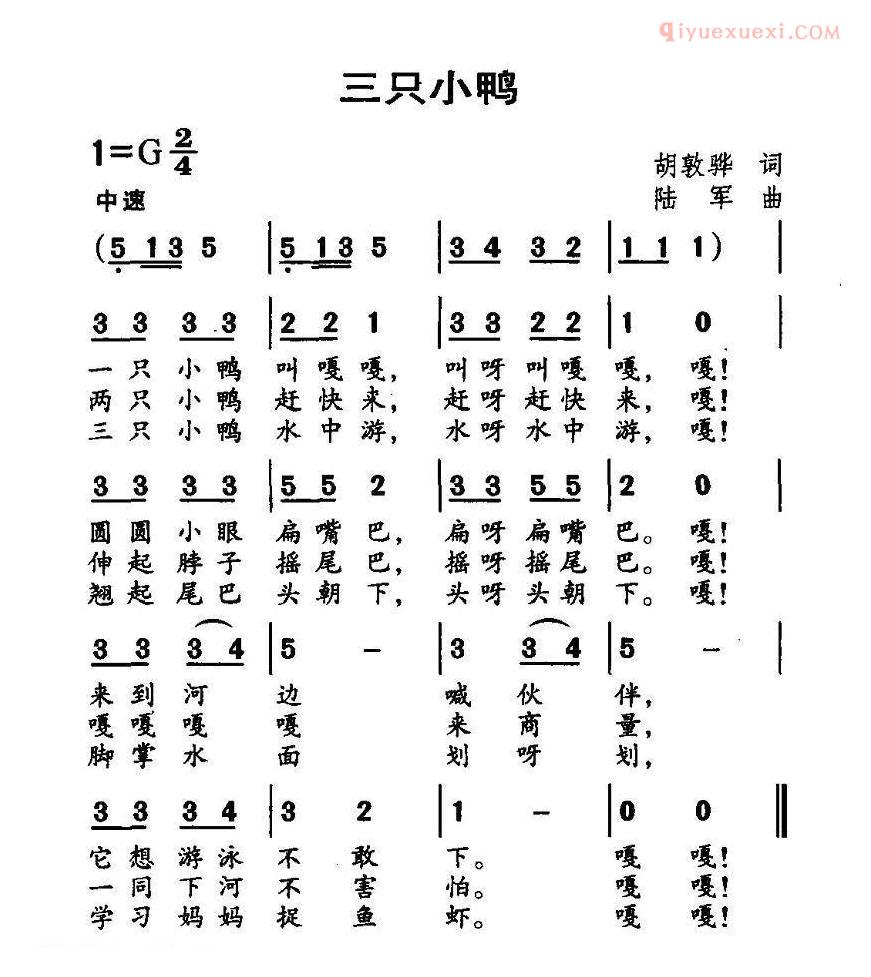 qiyuexuexi.COM
三只小鸭
1=G 2/4
胡敦骅 词
中速
陆 军 曲
(5 13 5 | 5 13 5 | 3 4 3 2 | 1 1 1) |
3 3 3 3 | 2 2 1 | 3 3 2 2 | 1 0 |
一只小鸭 叫嘎嘎, 叫呀叫嘎 嘎, 嘎!
两只小鸭 赶快来, 赶呀赶快 来, 嘎!
三只小鸭 水中游, 水呀水中 游, 嘎!
3 3 3 3 | 5 5 2 | 3 3 5 5 | 2 0 |
圆圆小眼 扁嘴巴, 扁呀扁嘴 巴。 嘎!
伸起脖子 摇尾巴, 摇呀摇尾 巴。 嘎!
翘起尾巴 头朝下, 头呀头朝 下。 嘎!
3 3 3 4 | 5 - | 3 3 4 | 5 - |
来到河 边 喊伙 伴,
嘎嘎嘎 嘎 来商 量,
脚掌水 面 划呀 划,
3 3 3 4 | 3 2 | 1 - | 0 0 ‖
它想游泳 不敢 下。 嘎 嘎!
一同下河 不害 怕。 嘎 嘎!
学习妈妈 捉鱼 虾。 嘎 嘎!